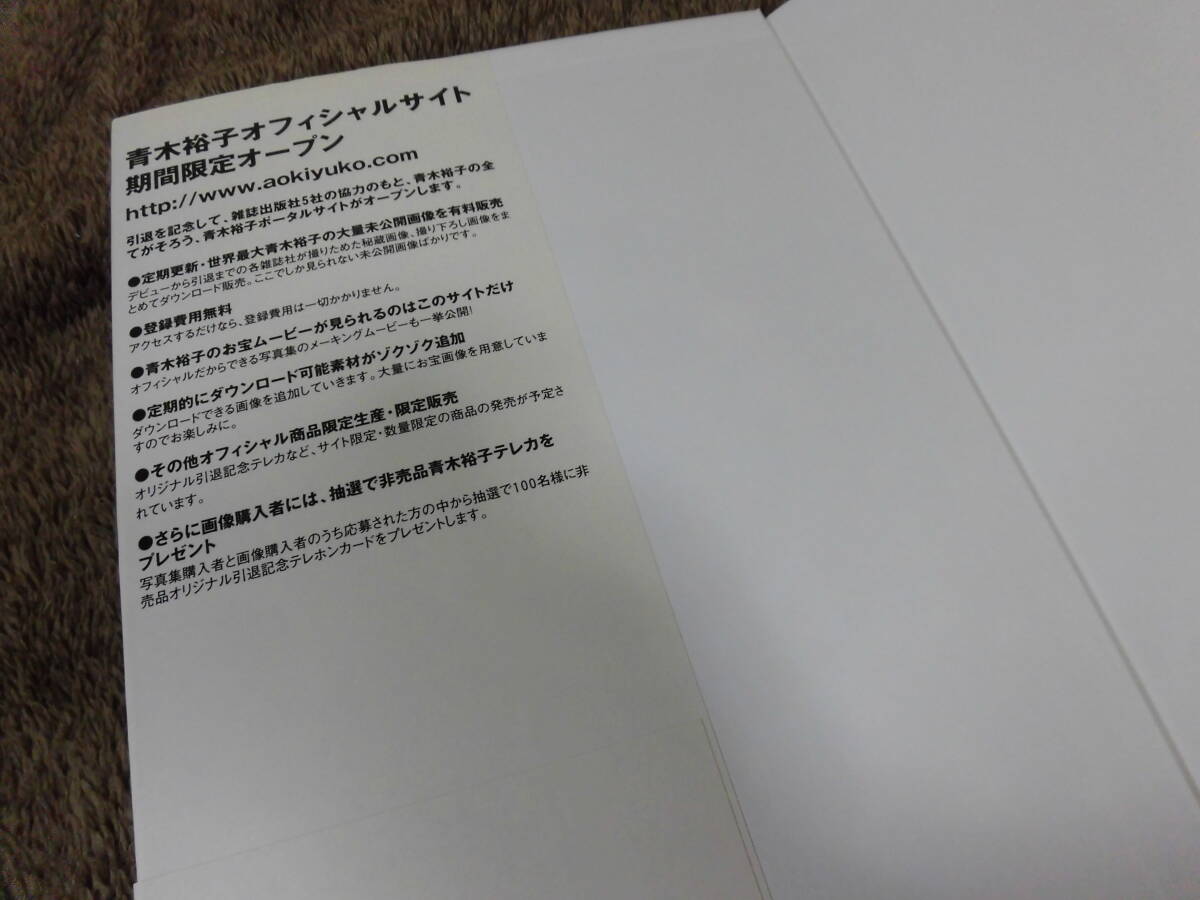 青木裕子オフィシャルサイト
期間限定オープン
http://www.aokiyuko.com
引退を記念して、雑誌出版社5社の協力のもと、青木裕子の全
てがそろう、青木裕子ポータルサイトがオープンします。
●定期更新・世界最大青木裕子の大量未公開画像を有料販売
デビューから引退までの各雑誌社が撮りためた秘蔵画像、撮り下ろし画像をま
とめてダウンロード販売。ここでしか見られない未公開画像ばかりです。
●登録費用無料
アクセスするだけなら、登録費用は一切かかりません。
●青木裕子のお宝ムービーが見られるのはこのサイトだけ
オフィシャルだからできる写真集のメーキングムービーも一挙公開!
●定期的にダウンロード可能素材がゾクゾク追加
ダウンロードできる画像を追加していきます。大量にお宝画像を用意していま
すのでお楽しみに。
●その他オフィシャル商品限定生産・限定販売
オリジナル引退記念テレカなど、サイト限定・数量限定の商品の発売が予定さ
れています。
●さらに画像購入者には、抽選で非売品青木裕子テレカを
プレゼント
写真集購入者と画像購入者のうち応募された方の中から抽選で100名様に非
売品オリジナル引退記念テレホンカードをプレゼントします。